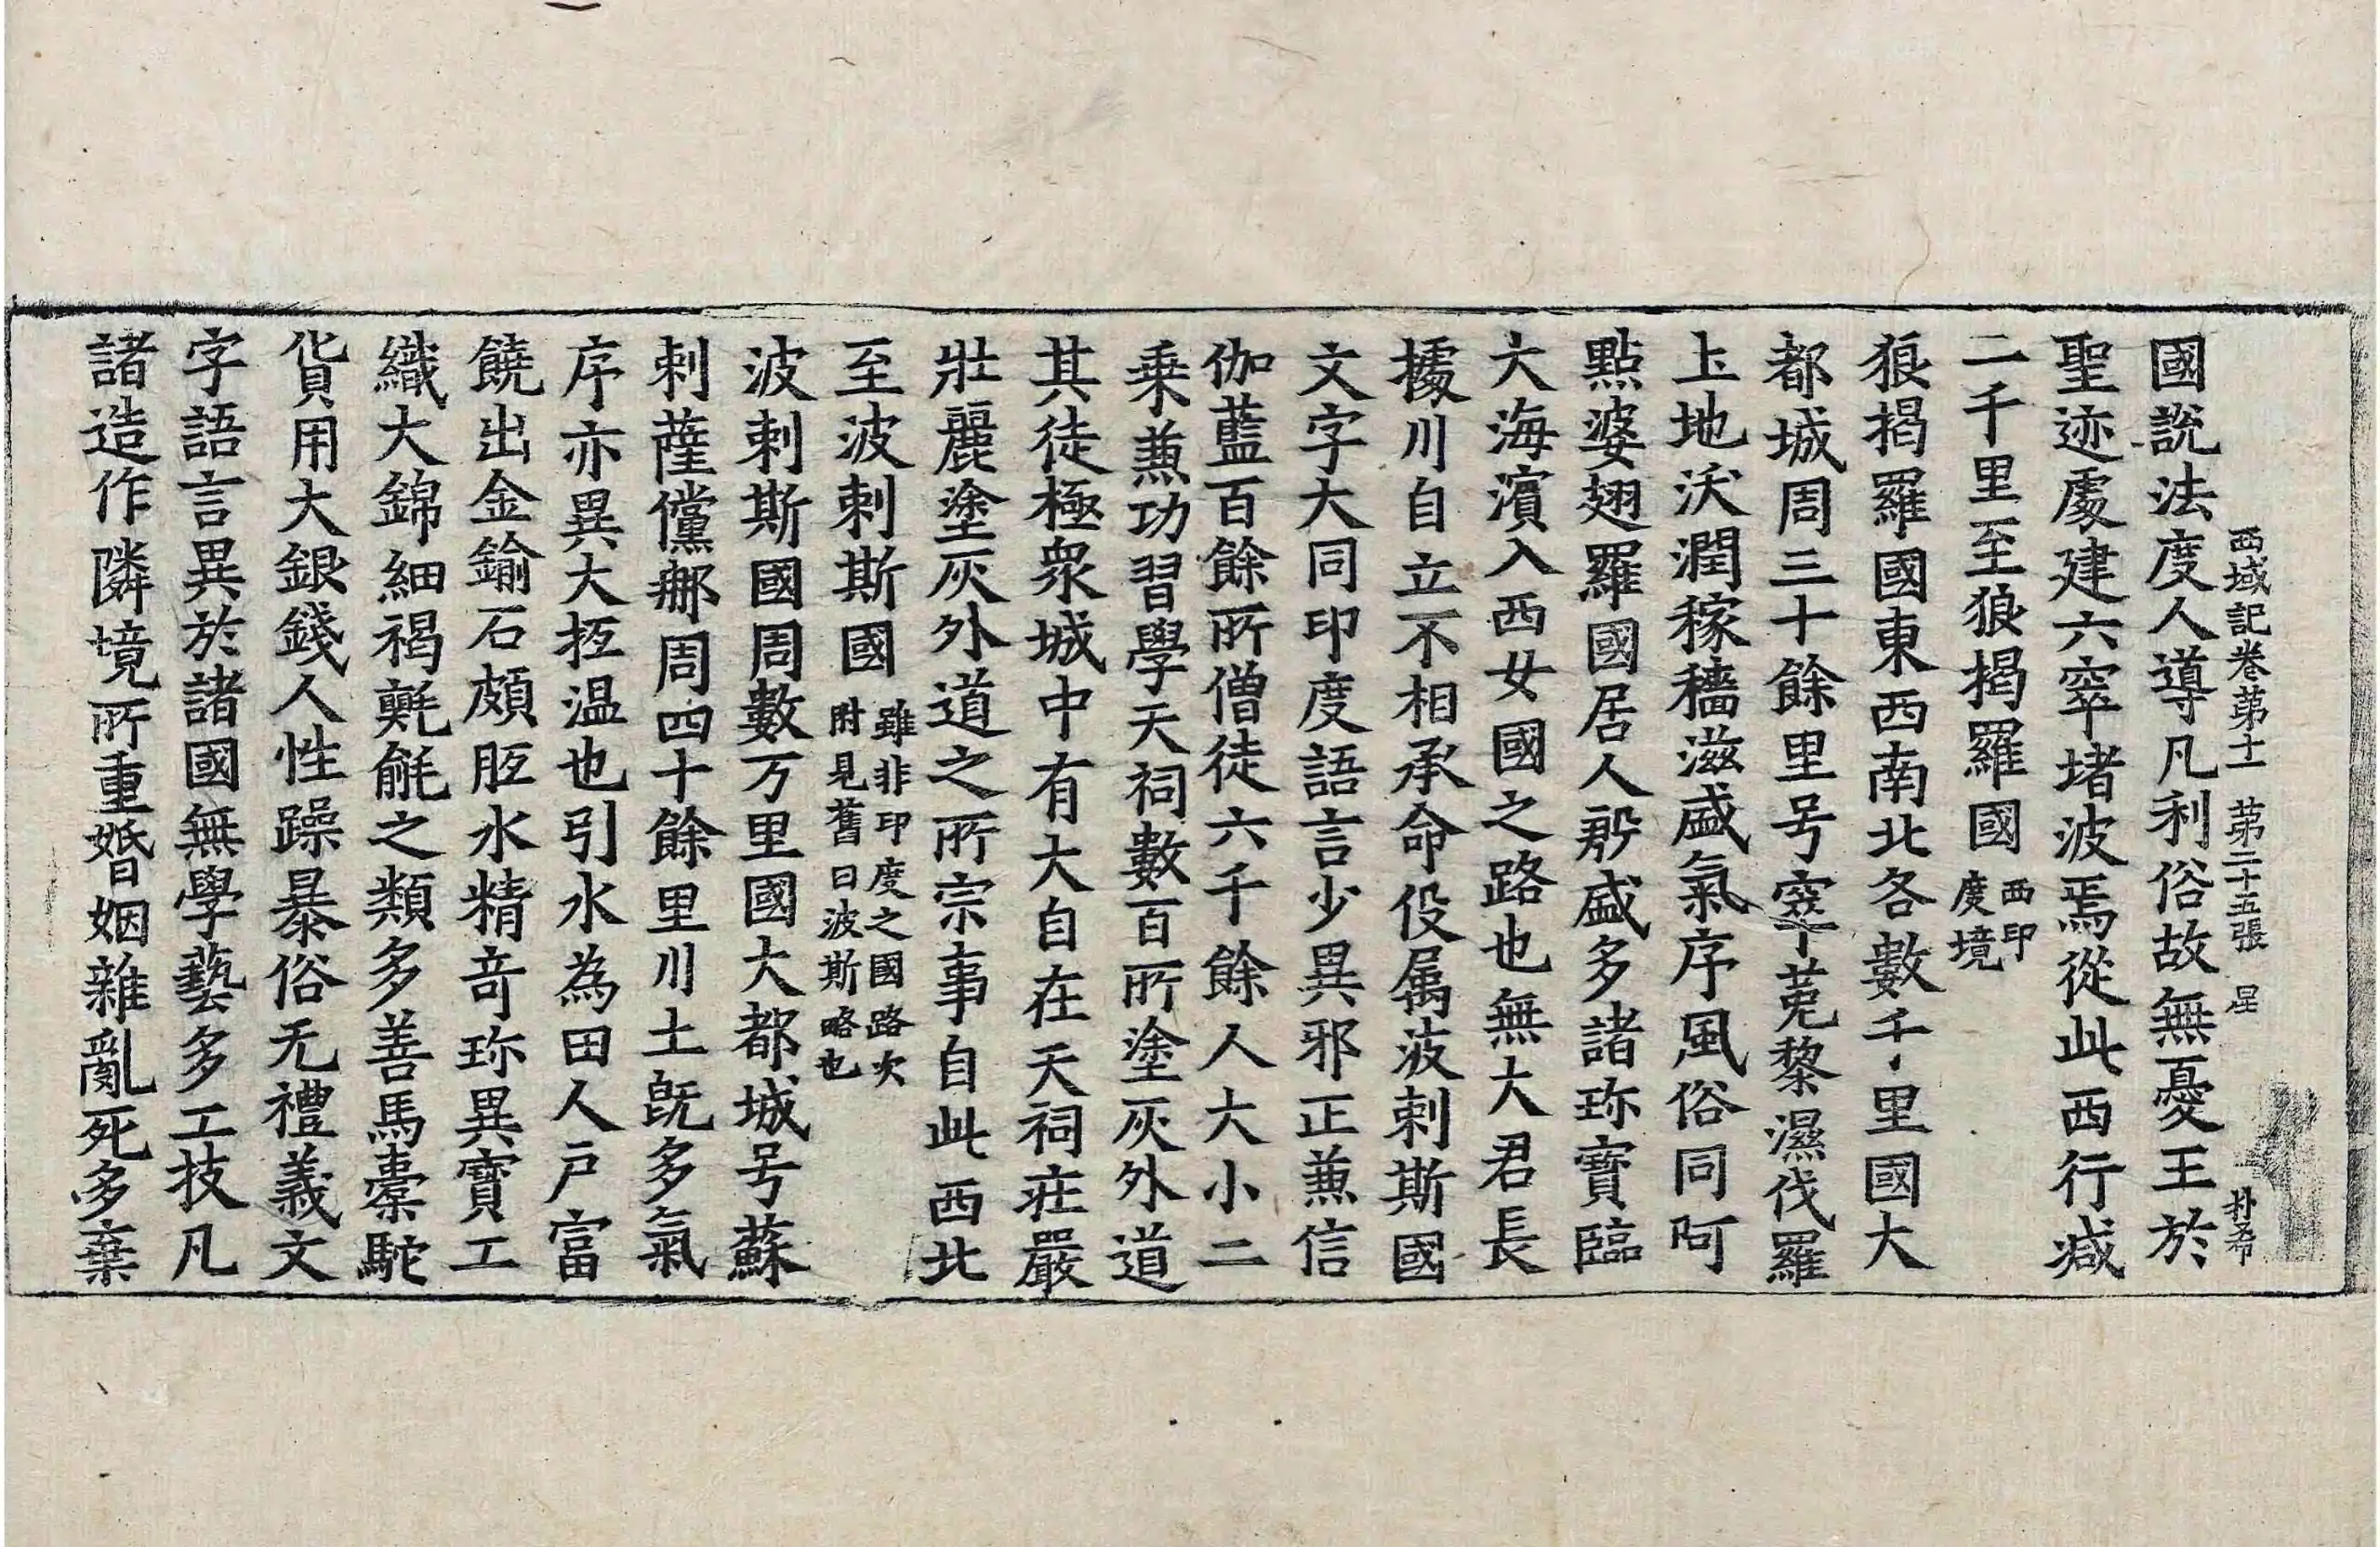 西域記卷第十一 第二十五張 星 朴希
國說法度人導凡利俗故無憂王於
聖迹處建六窣堵波焉從此西行減
二千里至狼揭羅國西印度境
狼揭羅國東西南北各數千里國大
都城周三十餘里号窣菟黎濕伐羅
土地沃潤稼穡滋盛氣序風俗同阿
點婆翅羅國居人殷盛多諸珎寶臨
大海濱入西女國之路也無大君長
據川自立不相承命役属波剌斯國
文字大同印度語言少異邪正兼信
伽藍百餘所僧徒六千餘人大小二
乗兼功習學天祠數百所塗灰外道
其徒極衆城中有大自在天祠莊嚴
壯麗塗灰外道之所宗事自此西北
至波剌斯國雖非印度之國路次附見舊曰波斯略也
波剌斯國周數万里國大都城号蘇
剌薩儻那周四十餘里川土旣多氣
序亦異大抵温也引水為田人戶富
饒出金鍮石頗胝水精竒珎異寶工
織大錦細褐氍毹之類多善馬橐駝
貨用大銀錢人性躁暴俗无禮義文
字語言異於諸國無學藝多工技凡
諸造作隣境所重婚姻雜亂死多棄